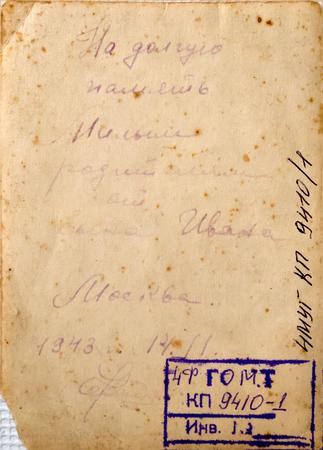 На долгую
память
Милым
родителям
от
сына Ивана
Москва
1943 г. 14/II.
НМУГ КП 9410/1
ГОМТ
КП 9410-1
Инв.